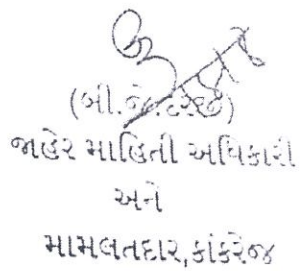 (બી.જે.દરજી)
જાહેર માહિતી અધિકારી
અને
મામલતદાર,કાંકરેજ